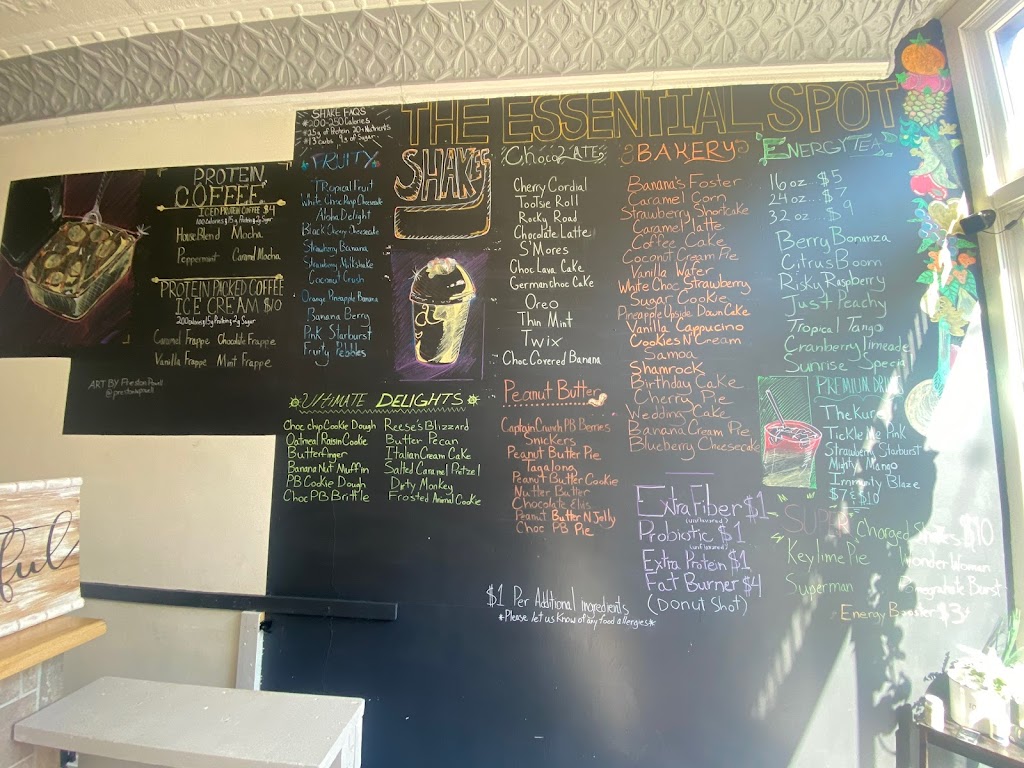 THE ESSENTIAL SPOT
SHAKE FAQS
*200-250 Calories
*25g of Protein 20+ Nutrients
*13 carbs 9g of Sugar
PROTEIN
COFFEE
ICED PROTEIN COFFEE $4
100 calories 15g Protein 2g Sugar
House Blend Mocha
Peppermint Caramel Mocha
PROTEIN PACKED COFFEE
ICE CREAM $10
200 calories 15g Protein 2g Sugar
Caramel Frappe Chocolate Frappe
Vanilla Frappe Mint Frappe
ART BY Preston Powell
@prestonwpowell
FRUITY
Tropical Fruit
White Choc Prap Cheesecake
Aloha Delight
Black Cherry Cheesecake
Strawberry Banana
Strawberry Milkshake
Coconut Crush
Orange Pineapple Banana
Banana Berry
Pink Starburst
Fruity Pebbles
SHAKES
ChocoLATE
Cherry Cordial
Tootsie Roll
Rocky Road
Chocolate Latte
S'Mores
Choc Lava Cake
German Choc Cake
Oreo
Thin Mint
Twix
Choc Covered Banana
Peanut Butter
Captain Crunch PB Berries
Snickers
Peanut Butter Pie
Tagalong
Peanut Butter Cookie
Nutter Butter
Chocolate Elvis
Peanut Butter N Jelly
Choc PB Pie
ULTIMATE DELIGHTS
Choc chip Cookie Dough Reese's Blizzard
Oatmeal Raisin Cookie Butter Pecan
Butterfinger Italian Cream Cake
Banana Nut Muffin Salted Caramel Pretzel
PB Cookie Dough Dirty Monkey
Choc PB Brittle Frosted Animal Cookie
BAKERY
Banana's Foster
Caramel Corn
Strawberry Shortcake
Caramel Latte
Coffee Cake
Coconut Cream Pie
Vanilla Wafer
White Choc Strawberry
Sugar Cookie
Pineapple Upside Down Cake
Vanilla Cappucino
Cookies N' Cream
Samoa
Shamrock
Birthday Cake
Cherry Pie
Wedding Cake
Banana Cream Pie
Blueberry Cheesecake
Extra Fiber $1
(unflavored)
Probiotic $1
(unflavored)
Extra Protein $1
Fat Burner $4
(Donut Shot)
$1 Per Additional Ingredients
*Please let us know of any food allergies*
ENERGY TEA
16 oz $5
24 oz... $7
32 oz... $9
Berry Bonanza
Citrus Boom
Risky Raspberry
Just Peachy
Tropical Tango
Cranberry Limeade
Sunrise Special
PREMIUM DRINK
The Kure
Tickle Me Pink
Strawberry Starburst
Mighty Mango
Immunity Blaze
$7 & $10
SUPER Charged $10
Key lime Pie Wonder Woman
Superman Pomegranate Burst
Energy Booster $3
ful